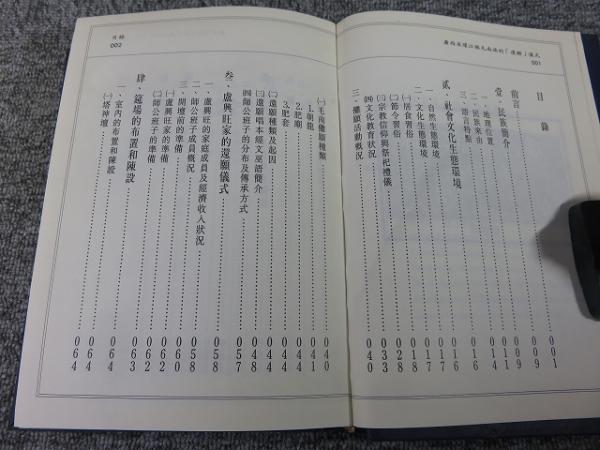 廣西省環江縣毛南族的「還願」儀式
001
目錄
前言……001
壹、民族簡介……009
一、地理位置……009
二、民族來由……011
三、語言特點……014
貳、社會文化生態環境……016
一、自然生態環境……016
二、文化生態環境……017
㈠居食習俗……017
㈡節令習俗……018
㈢宗教信仰與祭祀禮儀……028
㈣文化教育狀況……033
三、儺願活動概況……040
目錄
002
㈠毛南儺願種類……040
1.朝龍……041
2.肥廟……044
3.肥套……044
㈡還願種類及起因……044
㈢還願唱本經文巫語簡介……048
㈣師公班子的分布及傳承方式……057
叁、盧興旺家的還願儀式……058
一、盧興旺的家庭成員及經濟收入狀況……058
二、師公班子成員概況……060
三、開壇前的準備……062
㈠盧興旺家的準備……062
㈡師公班子的準備……063
肆、筵場的布置和陳設……064
一、室內的布置和陳設……064
㈠塔神壇……064